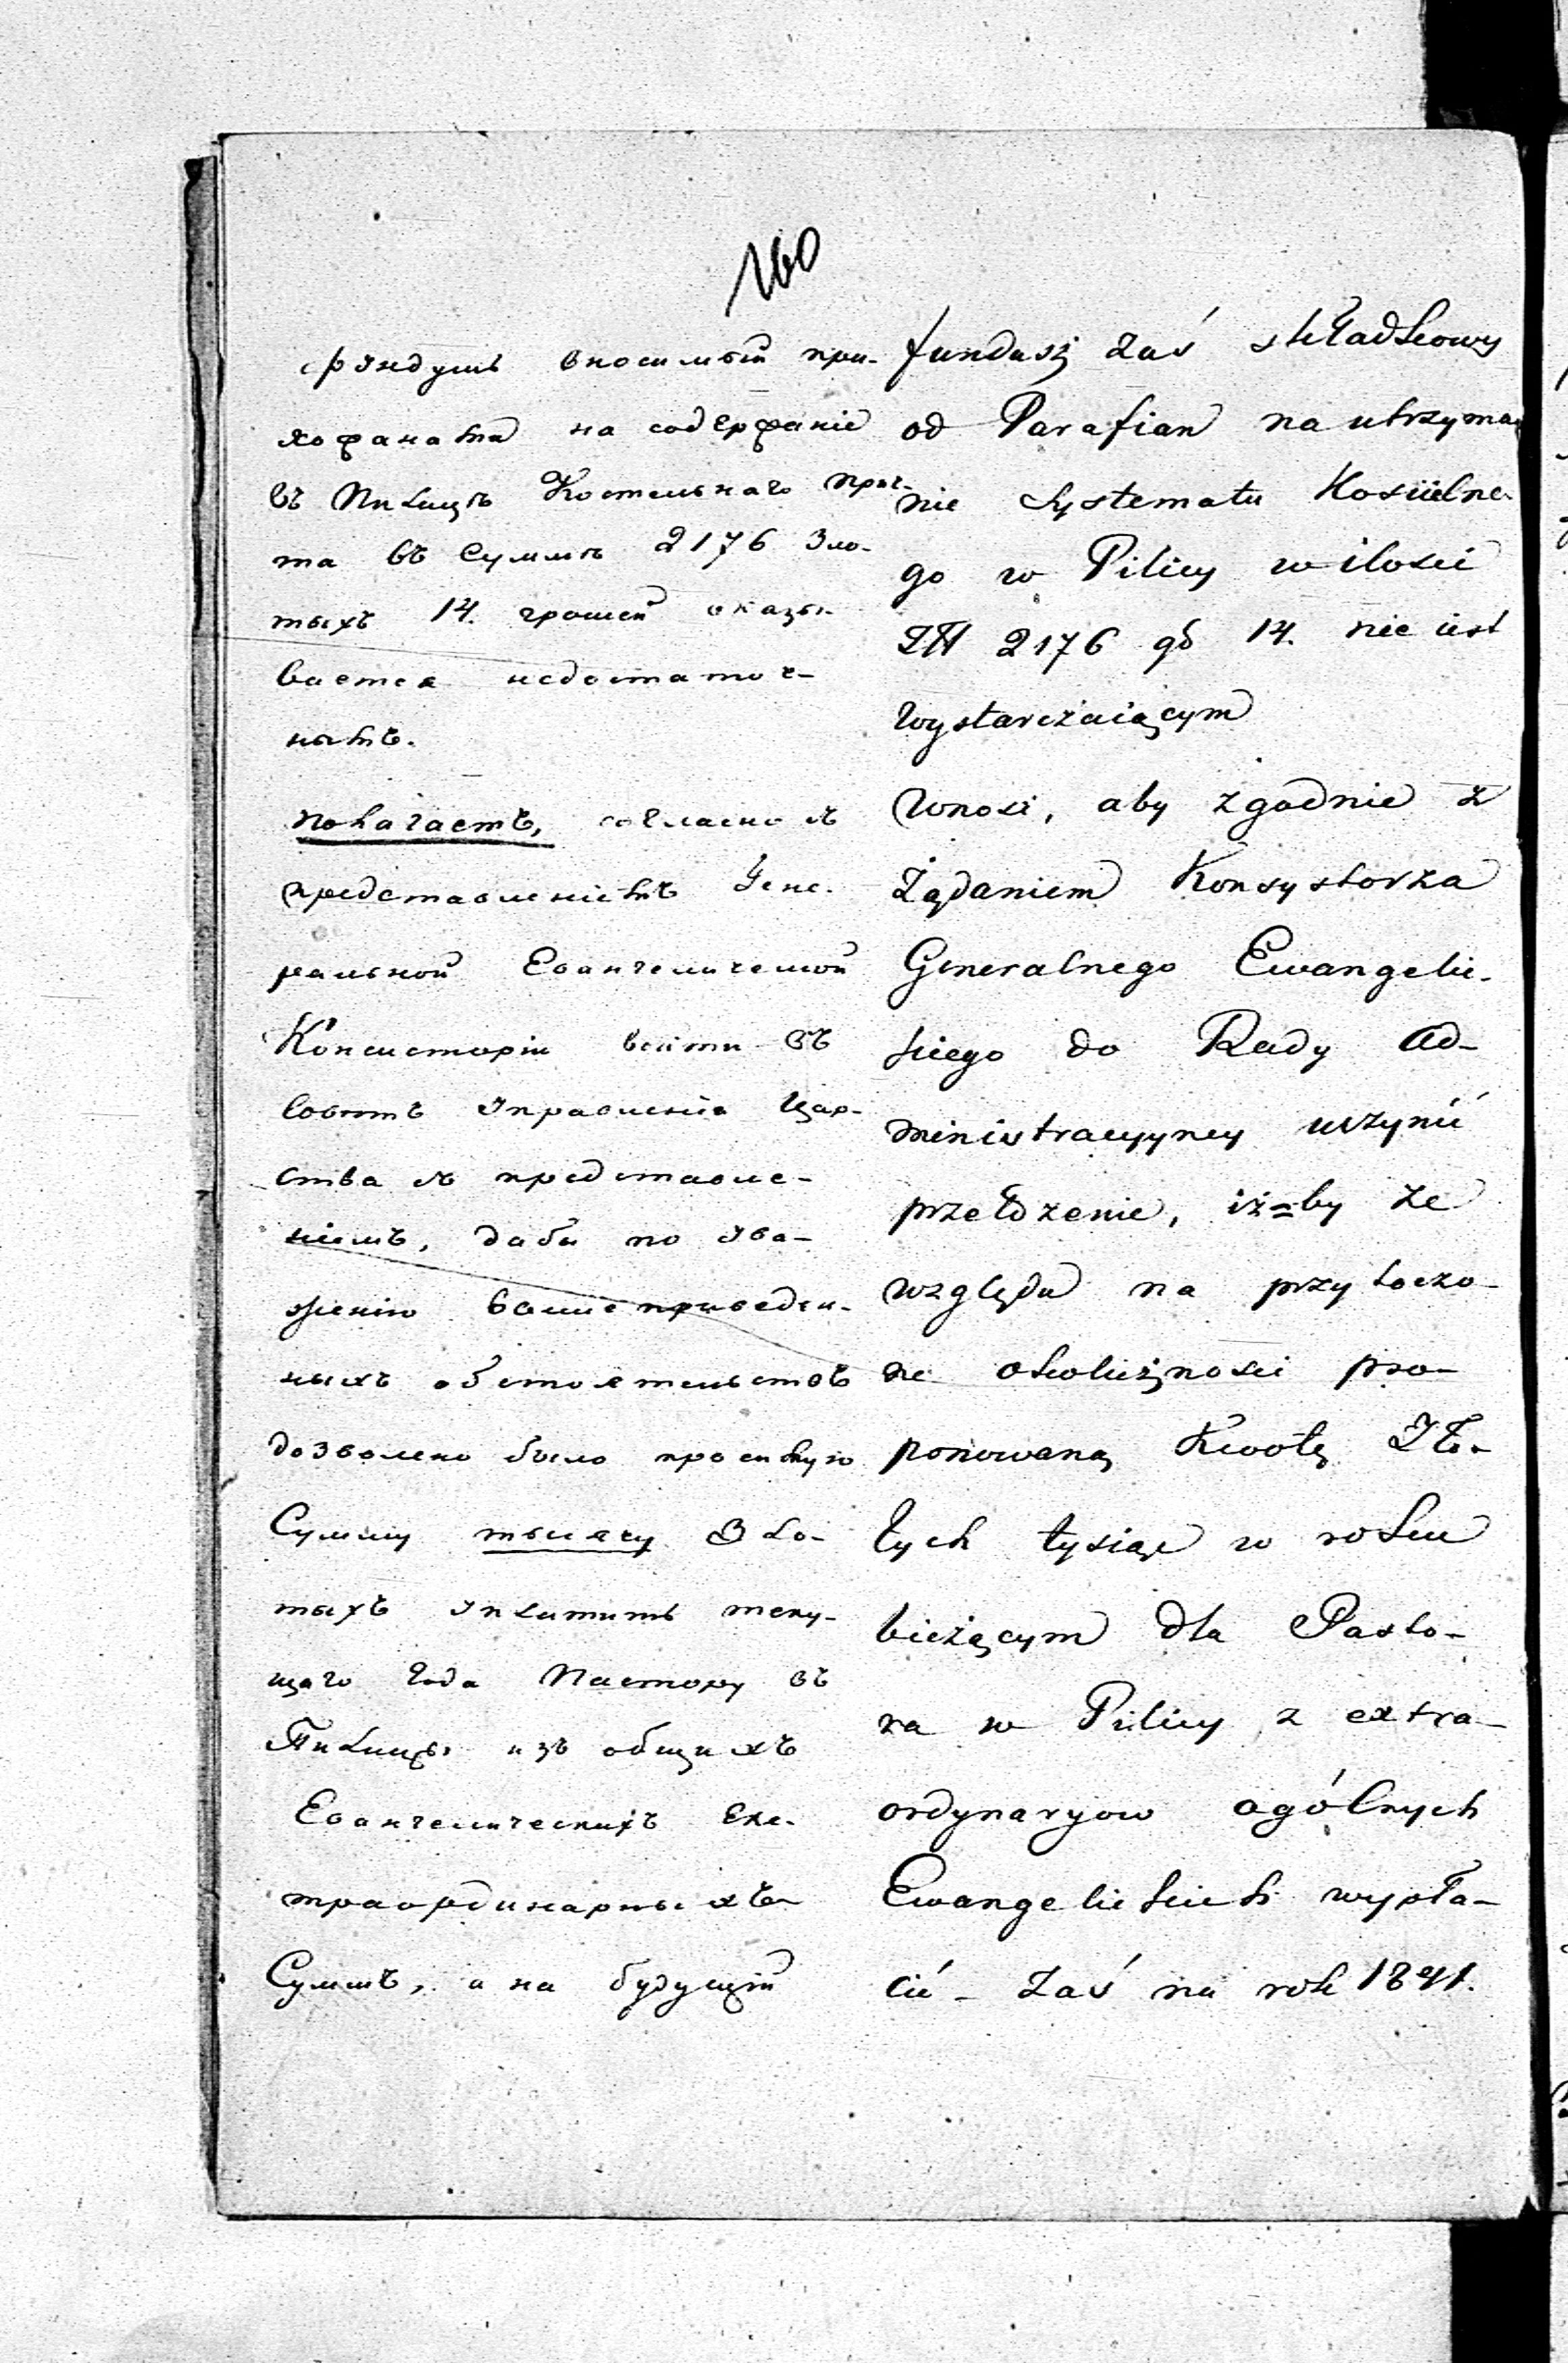 160
фундушъ вносимый при-
хожанами на содержаніе
въ Пилицѣ Костельнаго прич-
та въ Суммѣ 2176 Зло-
тыхъ 14. грошей оказы-
вается недостаточ-
нымъ.
полагаетъ, согласно съ
представленіемъ Гене-
ральной Евангелической
Консисторіи войти въ
Совѣтъ Управленія Цар-
ства съ представле-
ніемъ, дабы по ува-
женію вышеприведен-
ныхъ обстоятельствъ
дозволено было просимую
Сумму тысячу Зло-
тыхъ уплатить теку-
щаго года Пастору въ
Пилицы изъ общихъ
Евангелическихъ Экс-
траординарныхъ
Суммъ, а на будущій
fundusz zaś składkowy
od Parafian na utrzyma-
nie Systematu Kościelne-
go w Pilicy w ilości
Złł 2176 gr 14. nie iest
wystarczaiącym
wnosi, aby zgodnie z
Żądaniem Konsystorza
Generalnego Ewangelic-
kiego do Rady Ad-
ministracyyney uczynić
przełożenie, iż=by ze
względu na przytoczo-
ne okoliczności pro-
ponowaną Kwotę Zło-
tych tysiąc w roku
bieżącym dla Pasto-
ra w Pilicy z extra-
ordynaryow ogólnych
Ewangelickich wypła-
cić - zaś na rok 1841.